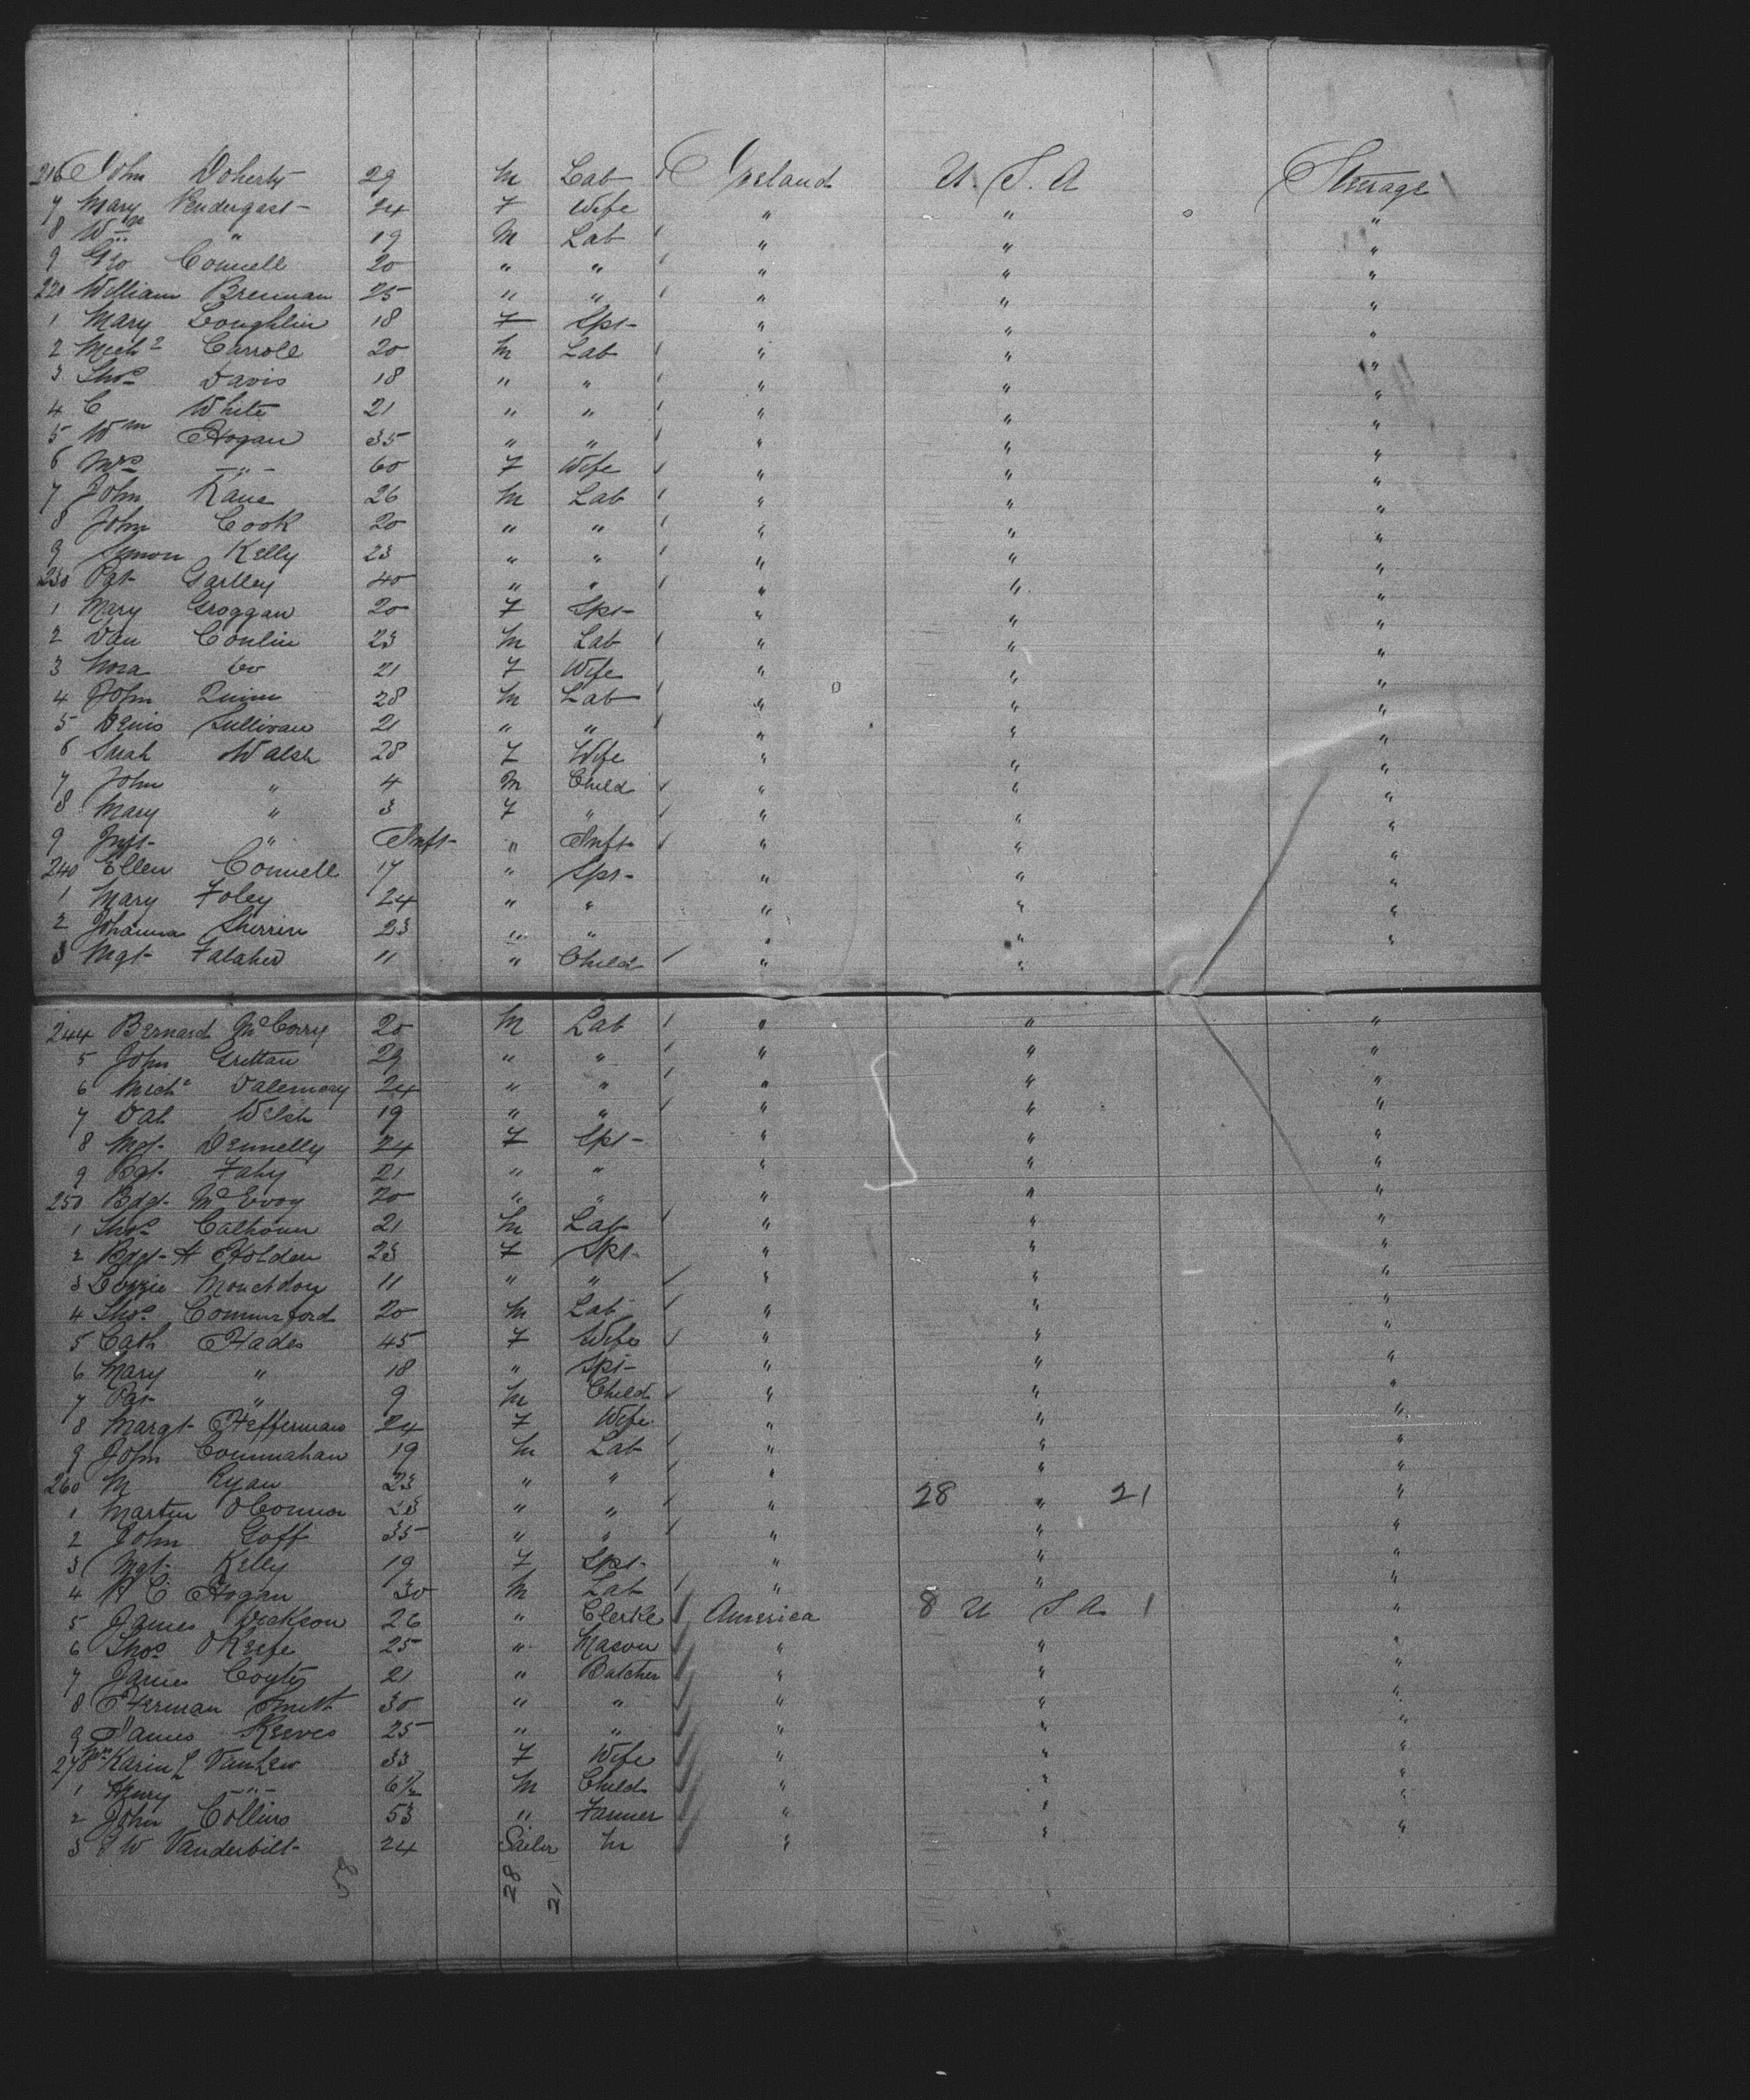 216 John Doherty 29 M Lab Ireland U.S.A Steerage
7 Mary Pendergast 24 F Wife " " "
8 Wm " 19 M Lab " " "
9 Geo Connell 20 " " " " "
220 William Brennan 25 " " " " "
1 Mary Loughlin 18 F Spr " " "
2 Michl Carroll 20 M Lab " " "
3 Thos Davis 18 " " " " "
4 C White 21 " " " " "
5 Wm Hogan 35 " " " " "
6 Mrs " 60 F Wife " " "
7 John Kane 26 M Lab " " "
8 John Cook 20 " " " " "
9 Symon Kelly 23 " " " " "
230 Pat Garlley 40 " " " " "
1 Mary Groggan 20 F Spr " " "
2 Dan Conlin 23 M Lab " " "
3 Nora Do 21 F Wife " " "
4 John Quinn 28 M Lab " " "
5 Denis Sullivan 21 " " " " "
6 Sarah Walsh 28 F Wife " " "
7 John " 4 M Child " " "
8 Mary " 3 F " " " "
9 Inft " Inft " Inft " " "
240 Ellen Connell 17 " Spr " " "
1 Mary Foley 24 " " " " "
2 Johanna Sherrin 23 " " " " "
3 Mgt Falaher 11 " Child " " "
244 Bernard McCorry 20 M Lab " " "
5 John Grettan 29 " " " " "
6 Michl 24 " " " " "
7 Walsh 19 " " " " "
8 Mgt Dennelly 24 F Spr " " "
9 Bgt Fahy 21 " " " " "
250 Bdgt McEvoy 20 " " " " "
1 Thos Calhoun 21 M Lab " " "
2 Bdgt A Holden 23 F Spr " " "
3 Lizzie 11 " " " " "
4 Thos Commerford 20 M Lab " " "
5 Cath Hades 45 F Wife " " "
6 Mary " 18 " Spr " " "
7 Pat " 9 M Child " " "
8 Margt Heffernan 24 F Wife " " "
9 John Commahan 19 M Lab " " "
260 M Ryan 23 " " " " "
1 Martin O'Connor 23 " " " 28 " 21 "
2 John Goff 35 " " " " "
3 Mgt Kelly 19 F Spr " " "
4 H C Hogan 30 M Lab " " "
5 James Dickson 26 " Clerke America 8 U S A 1 "
6 Thos O'Keefe 25 " Mason " " "
7 James Coyte 21 " Butcher " " "
8 Herman Smith 30 " " " " "
9 James Reeves 25 " " " " "
270 Mrs Karin L VanLew 33 F Wife " " "
1 Henry " 6½ M Child " " "
2 John Collins 53 " Farmer " " "
3 W Vanderbilt 24 Sailor M " " "
58 28 21